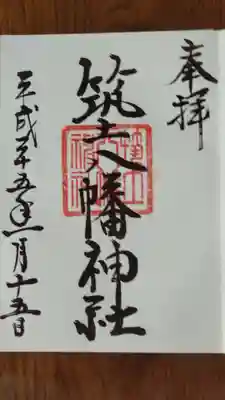 奉拝
筑土八幡神社
平成二十五年一月十五日